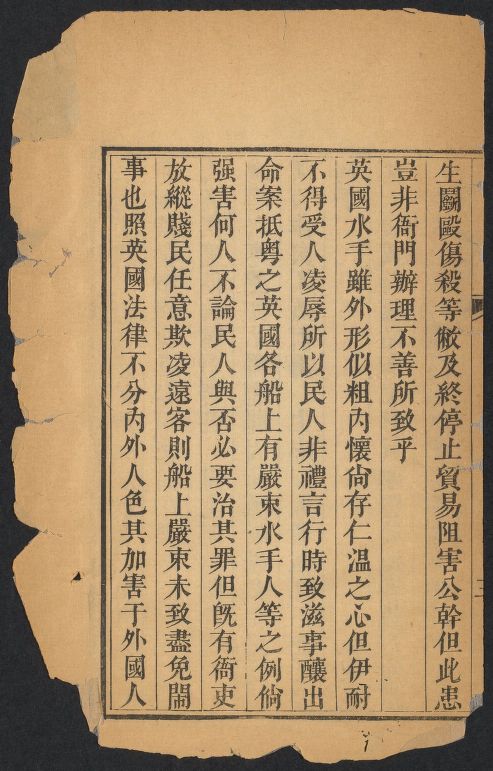 生鬭毆傷殺等敝及終停止貿易阻害公幹但此患
豈非衙門辦理不善所致乎
英國水手雖外形似粗內懷尙存仁溫之心但伊耐
不得受人凌辱所以民人非禮言行時致滋事釀出
命案抵粤之英國各船上有嚴束水手人等之例倘
强害何人不論民人與否必要治其罪但旣有衙吏
放縱賤民任意欺凌遠客則船上嚴束未致盡免鬧
事也照英國法律不分內外人色其加害于外國人